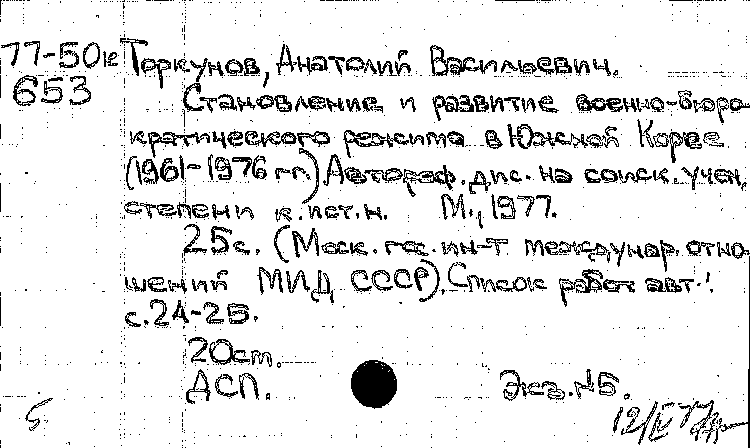 77-50к Торкунов, Анатолий Васильевич.
653
Становление и развитие военно-бюро-
кратического режима в Южной Корее
(1961-1976 гг.) Автореф. дис. на соиск. учен.
степени к.ист.н. М., 1977.
25с. (Моск. гос. ин-т междунар. отно-
шений МИД СССР). Список работ авт.:
с.24-25.
20см.
ДСП. Экз.№5.
5 12/IV 77